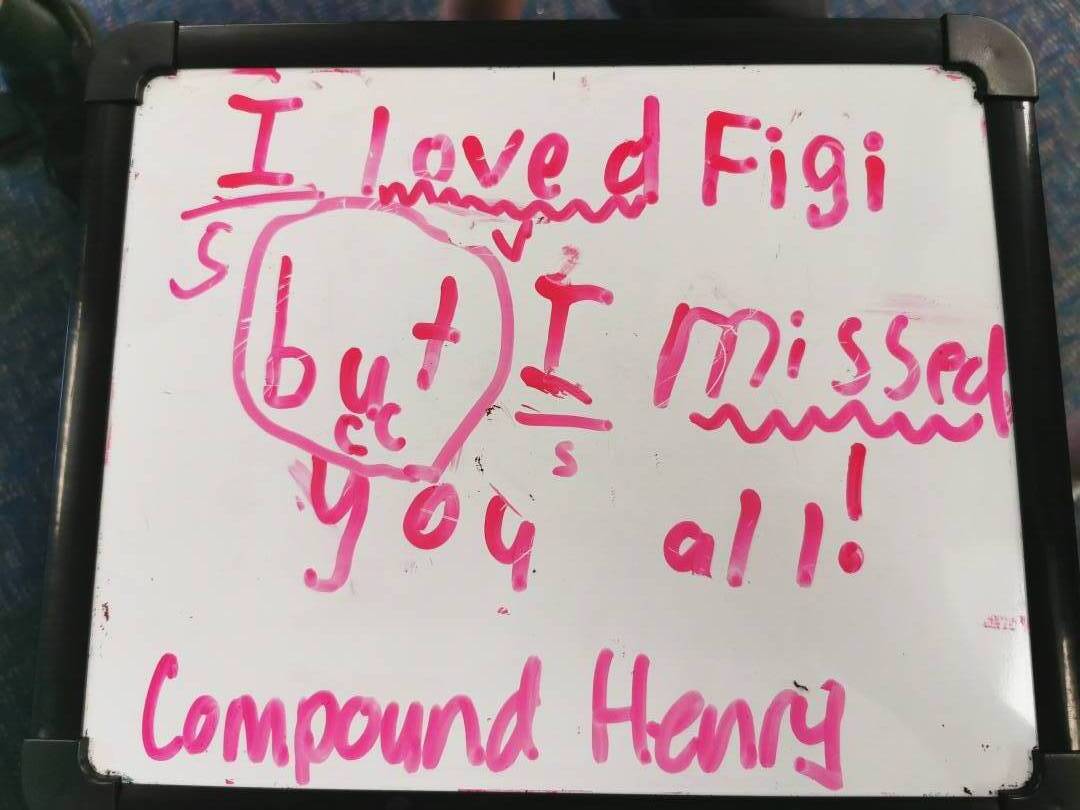 I loved Figi
s v
but I missed
cc s
you all!
Compound Henry